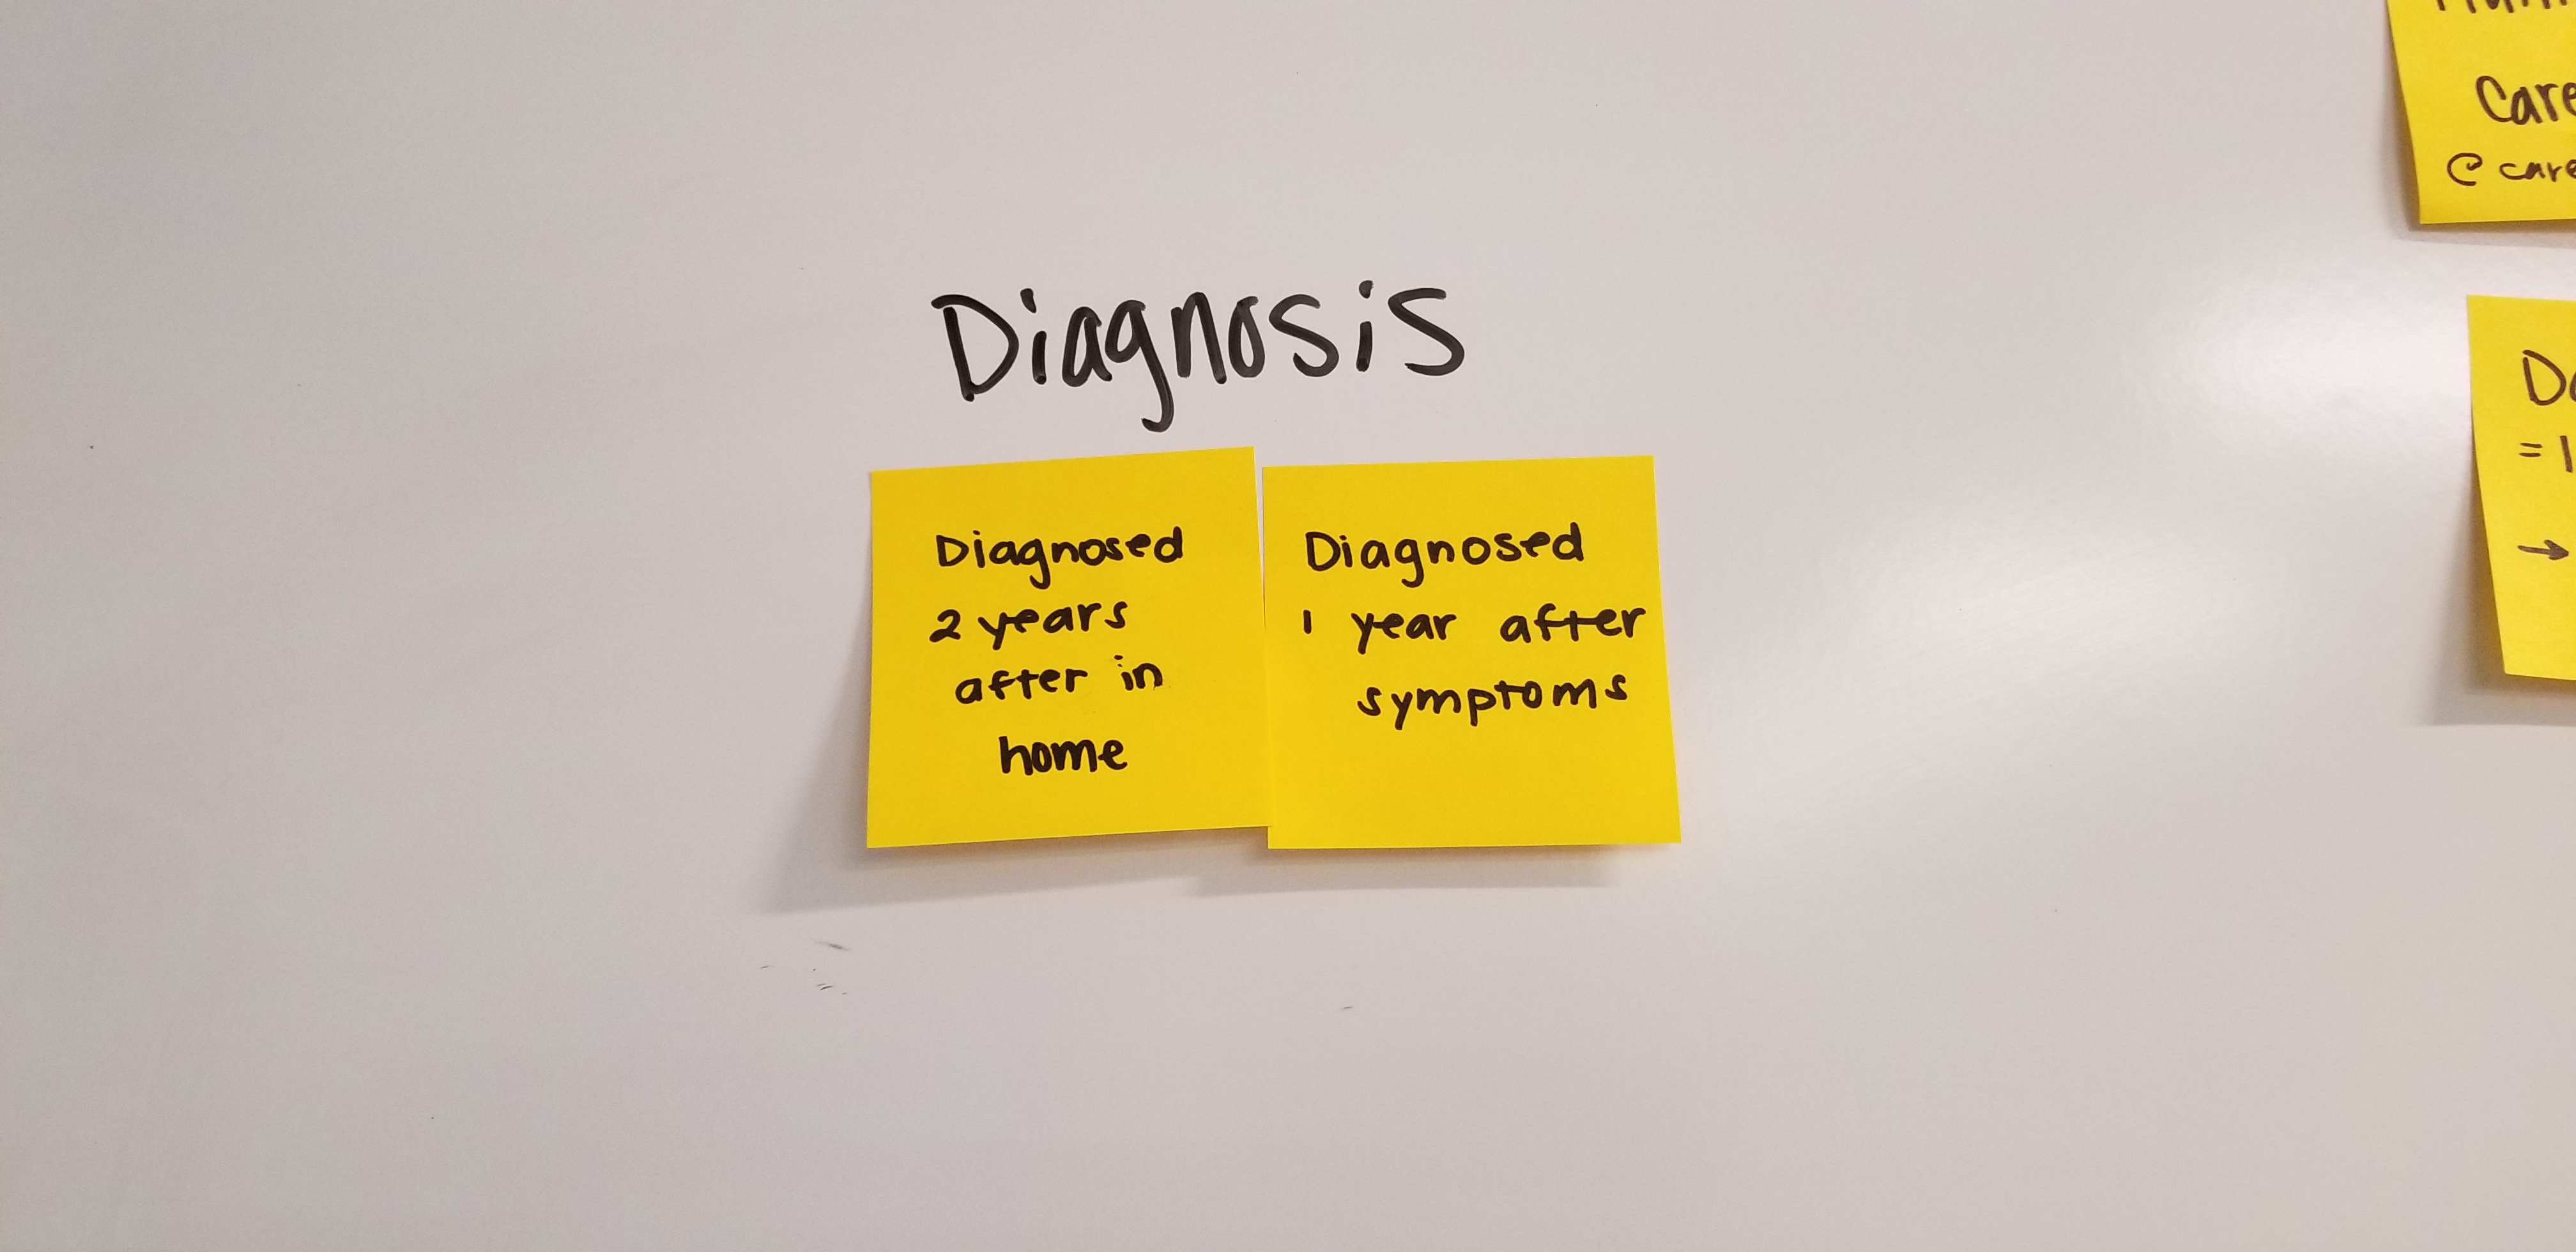 Diagnosis
Diagnosed
2 years
after in
home
Diagnosed
1 year after
symptoms
Care
@ care
= 1
→